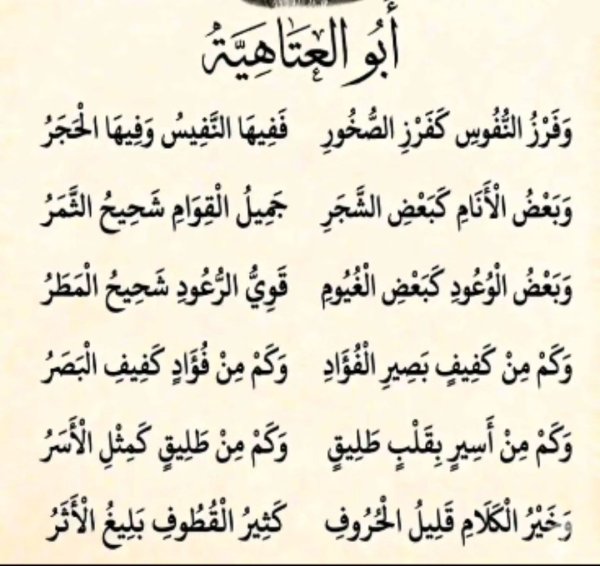 أَبُو الْعَتَاهِيَّةُ
وَفَرْزُ النُّفُوسِ كَفَرْزِ الصُّخُورِ فَفِيهَا النَّفِيسُ وَفِيهَا الْحَجَرُ
وَبَعْضُ الْأَنَامِ كَبَعْضِ الشَّجَرِ جَمِيلُ الْقِوَامِ شَحِيحُ الثَّمَرُ
وَبَعْضُ الْوُعُودِ كَبَعْضِ الْغُيُومِ قَوِيُّ الرُّعُودِ شَحِيحُ الْمَطَرُ
وَكَمْ مِنْ كَفِيفٍ بَصِيرِ الْفُؤَادِ وَكَمْ مِنْ فُؤَادٍ كَفِيفِ الْبَصَرُ
وَكَمْ مِنْ أَسِيرٍ بِقَلْبٍ طَلِيقٍ وَكَمْ مِنْ طَلِيقٍ كَمِثْلِ الْأَسَرُ
وَخَيْرُ الْكَلَامِ قَلِيلُ الْحُرُوفِ كَثِيرُ الْقُطُوفِ بَلِيغُ الْأَثَرُ